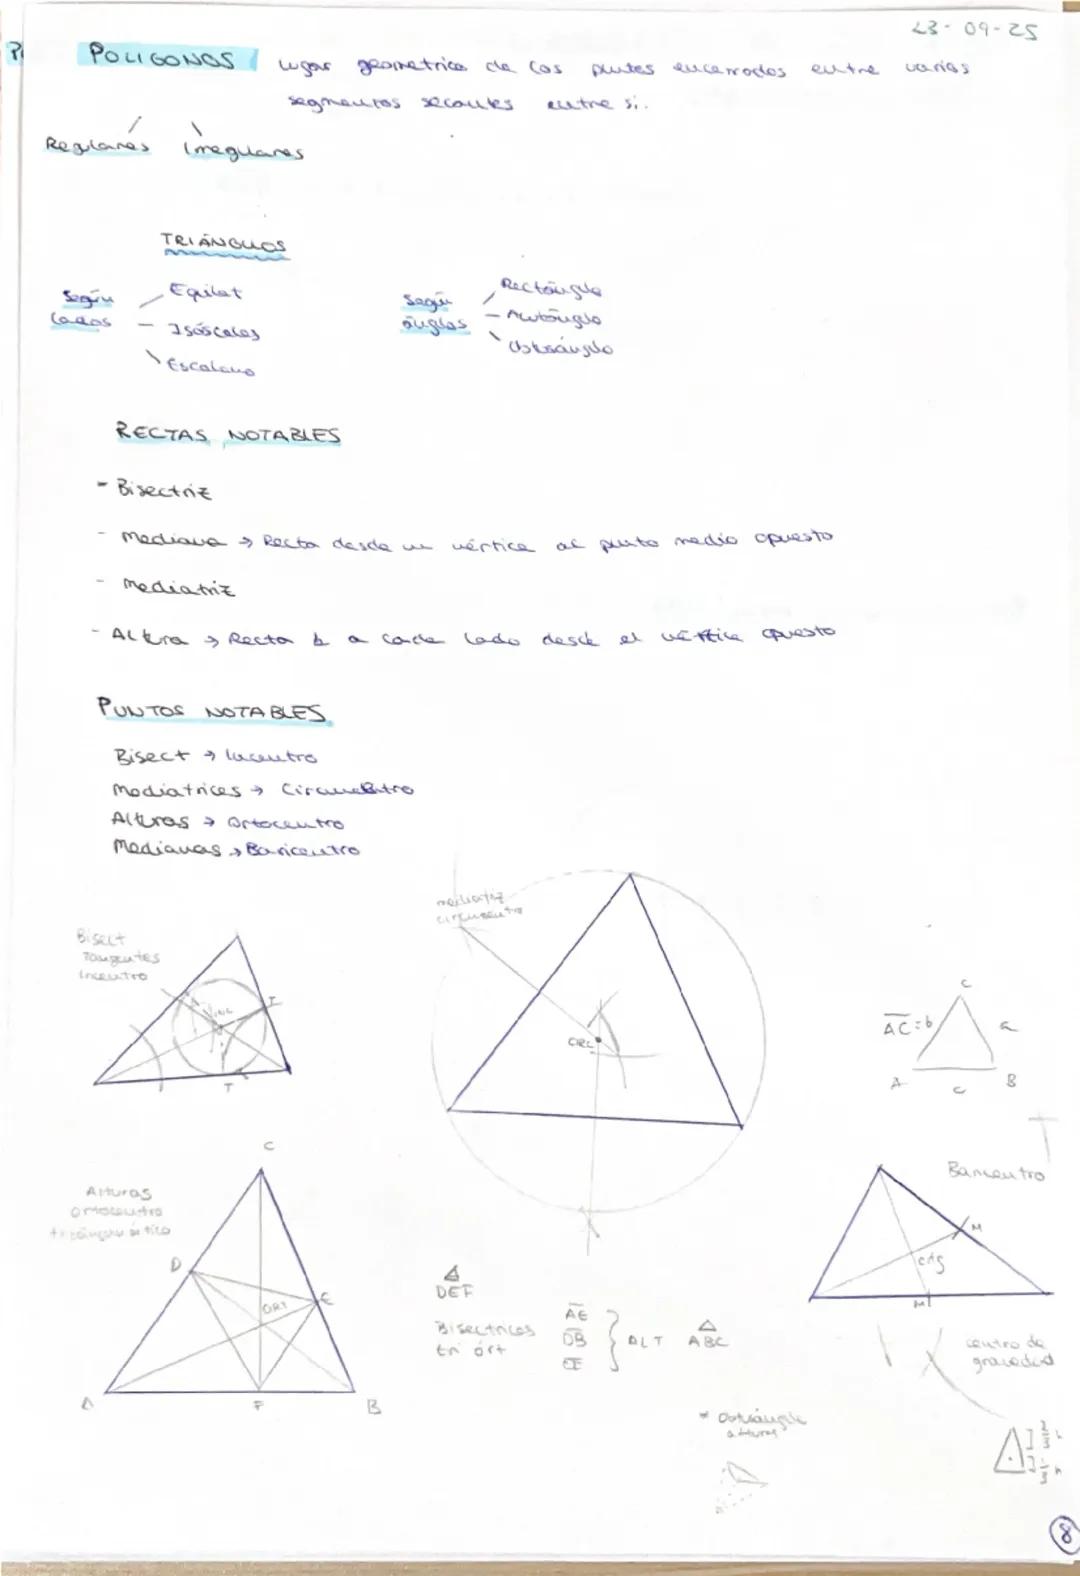 23-09-25
POLIGONOS lugar geometrico de los puntos encerrados entre varios
segmentos secantes entre si.
Regulares Irregulares
TRIÁNGULOS
Según lados
Equilat
Isósceles
Escaleno
Según ángulos
Rectángulo
Acutángulo
Obtusángulo
RECTAS NOTABLES
- Bisectriz
- Mediana → Recta desde un vértice al punto medio opuesto
- Mediatriz
- Altura → Recta a cada lado desde el vértice opuesto
PUNTOS NOTABLES
Bisect → Incentro
Mediatrices → Circuncentro
Alturas → Ortocentro
Medianas → Baricentro
Bisect
Tangentes
Incentro
INC
T
T
mediatriz
circuncentro
C
AC = b
a
A
c
B
Baricentro
M
M
cdg
centro de
gravedad
Alturas
ortocentro
triángulo órtico
C
D
E
ORT
A
F
B
DEF
Bisectrices
tri órt
AE
DB
CF
ALT ABC
* Obtusángulo
alturas
2/3 h
1/3 h
8